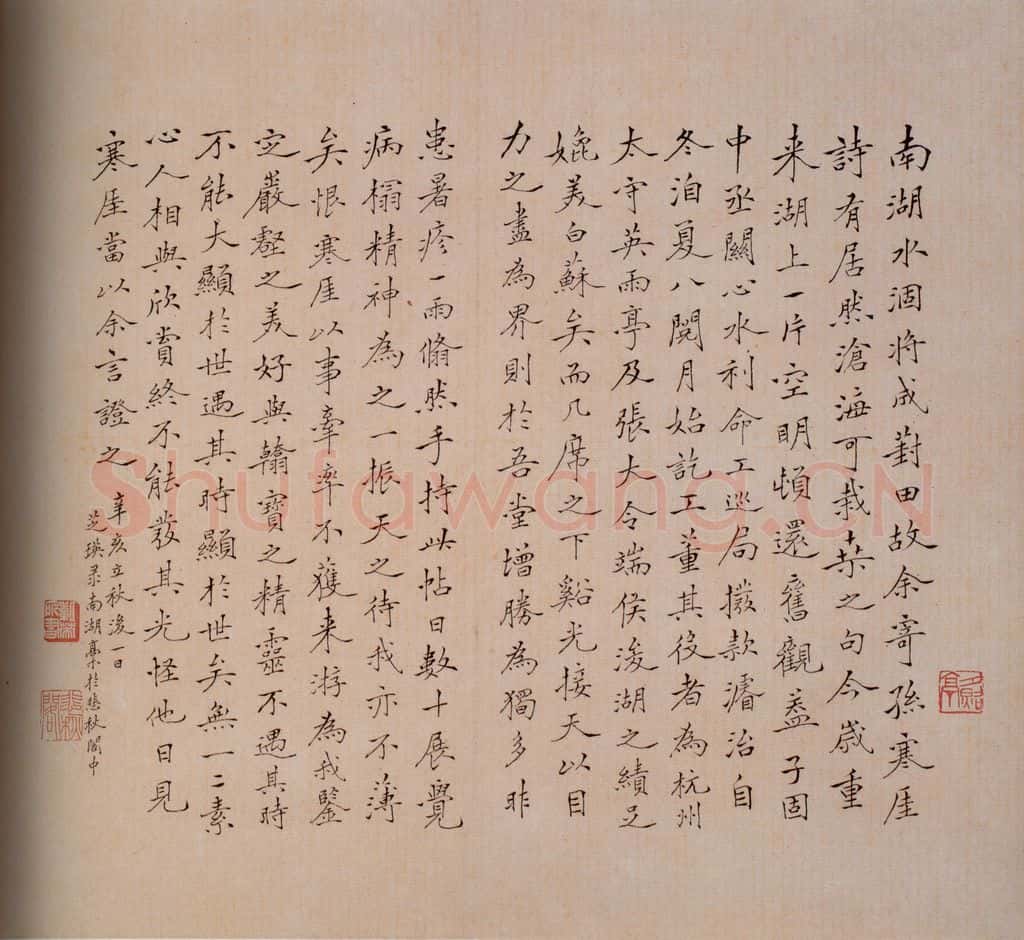 南湖水涸將成葑田故余寄孫寒厓
詩有居然滄海可栽桑之句今歲重
来湖上一片空明頓還舊觀蓋子固
中丞關心水利命工巡局撥款濬治自
冬洎夏八閱月始訖工董其役者為杭州
太守英雨亭及張大令端侯浚湖之績足
媲美白蘇矣而几席之下谿光接天以目
力之盡為界則於吾堂增勝為獨多昨
患暑疹一雨翛然手持此帖日數十展覺
病榻精神為之一振天之待我亦不薄
矣恨寒厓以事牽率不獲来游為我鑒
定嚴壑之美好與翰寶之精靈不遇其時
不能大顯於世遇其時顯於世矣無一二素
心人相與欣賞終不能發其光怪他日見
寒厓當以余言證之
辛亥立秋後一日
芝瑛录南湖稾於悲秋閣中
Shufawang.CN